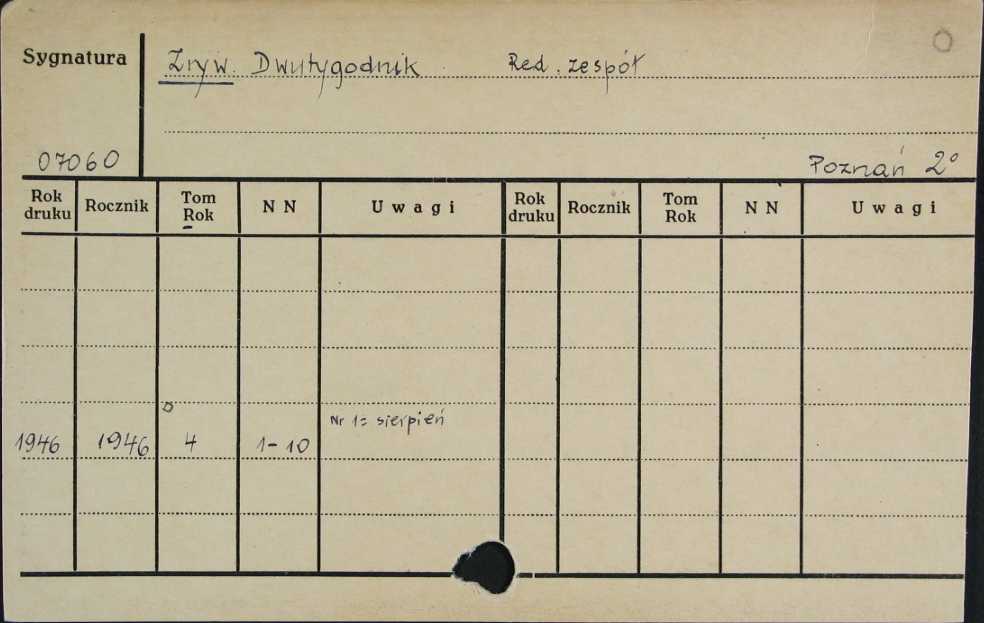 Sygnatura
Zryw. Dwutygodnik Red. zespół
07060
Poznań 2°
Rok druku Rocznik Tom Rok N N Uwagi Rok druku Rocznik Tom Rok N N Uwagi
Nr 1= sierpień
1946 1946 4 1-10